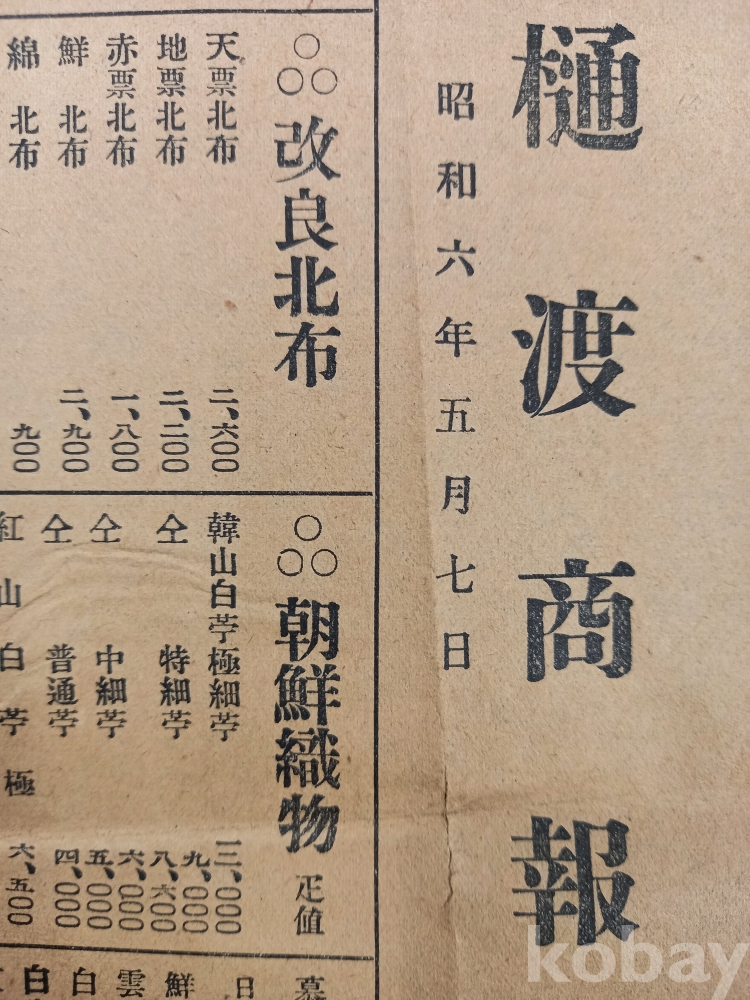 樋渡商報
昭和六年五月七日
○○○ 改良北布
天票北布 二、六〇〇
地票北布 二、二〇〇
赤票北布 一、八〇〇
鮮北布 二、九〇〇
綿北布 九〇〇
○○○ 朝鮮織物 疋値
韓山白苧極細苧 三、〇〇〇
九、〇〇〇
仝 特細苧 八、六〇〇
六、〇〇〇
仝 中細苧 五、〇〇〇
仝 普通苧 四、〇〇〇
紅山白苧極 六、五〇〇
慕
日
鮮
雲
白
白
kobay